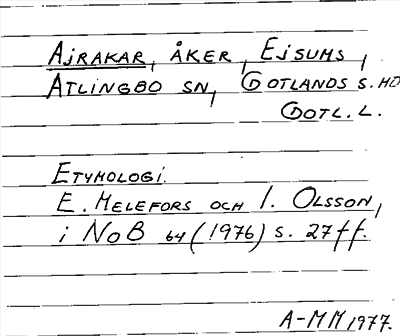 Ajrakar, åker, Ejsums,
Atlingbo sn, Gotlands s. hd
Gotl. l.
Etymologi.
E. Melefors och I. Olsson,
i NoB 64 (1976) s. 27ff.
A-MM 1977.